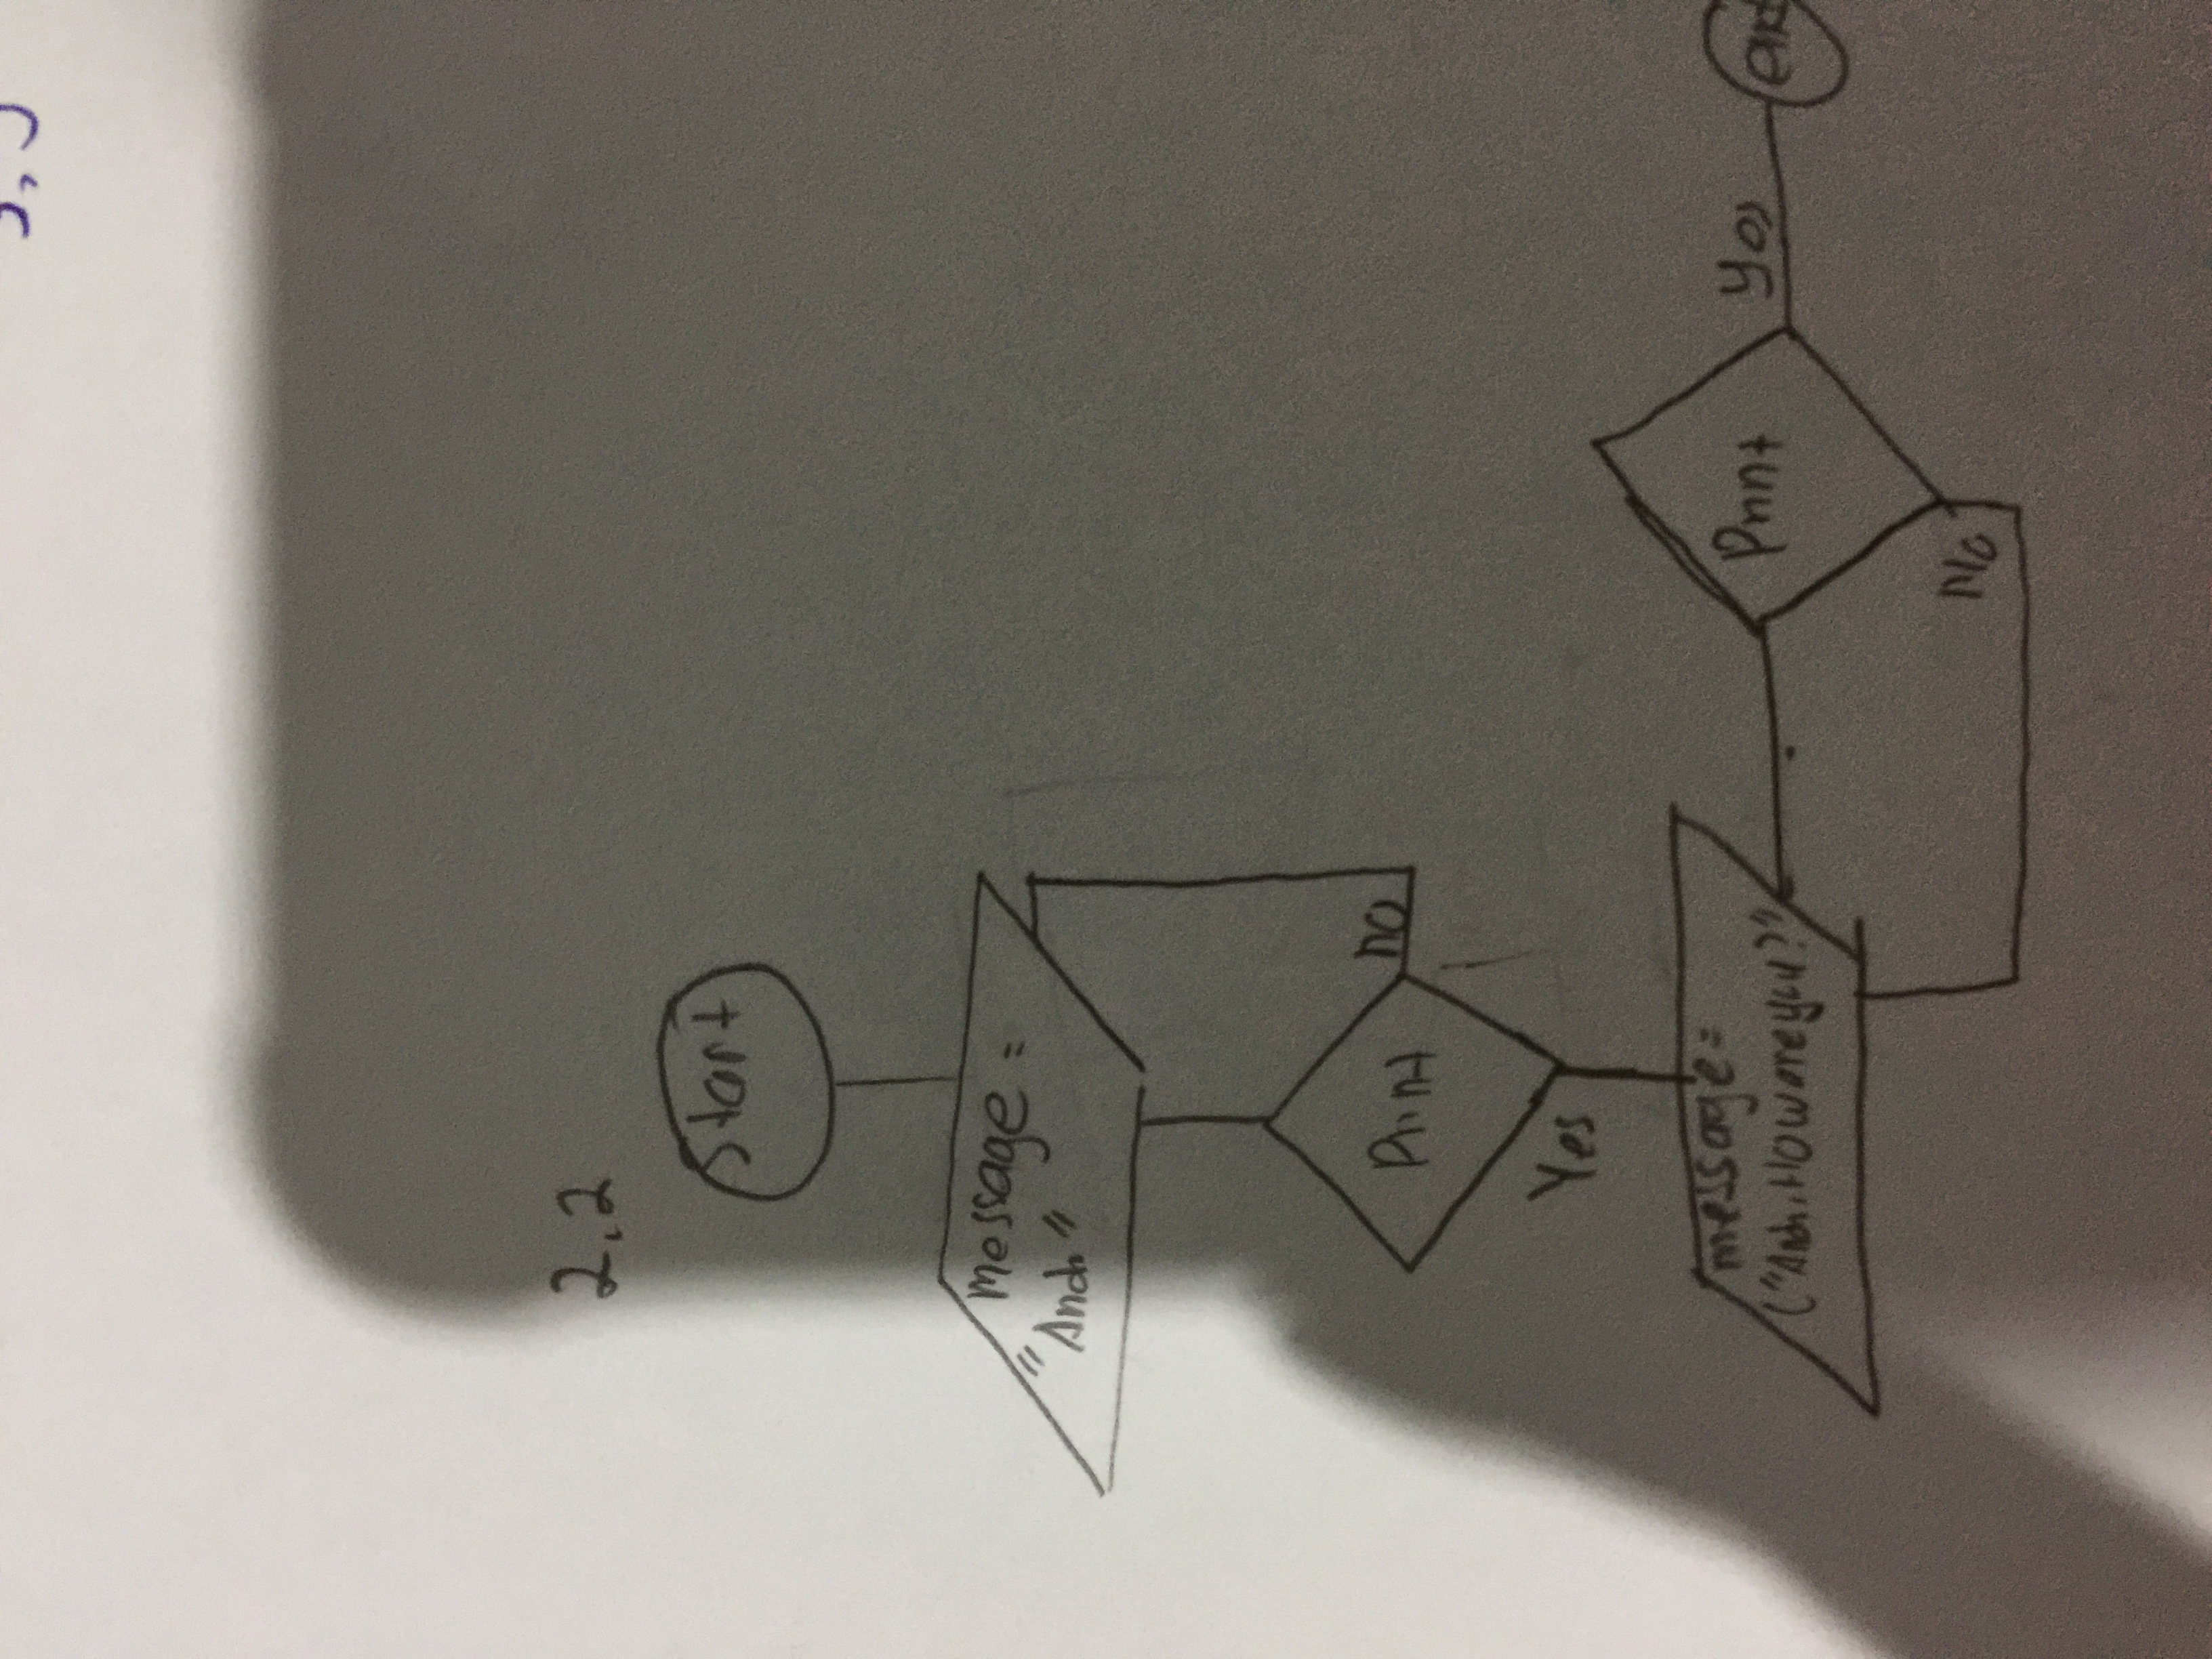 2.2
Start
message =
"Andi"
Print
no
Yes
message =
("Andi, How are you?"
Print
Yes
No
end